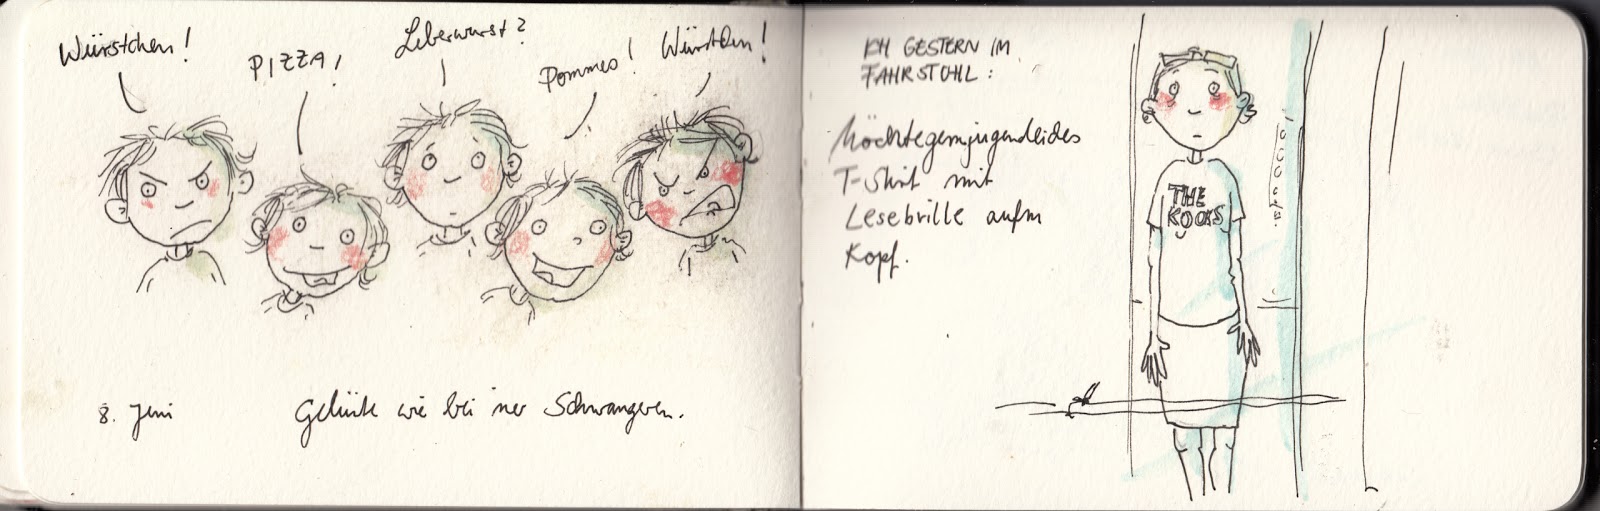 Würstchen!
PIZZA!
Leberwurst?
Pommes!
Würstchen!
8. Juni
Gelüste wie bei ner Schwangeren.
ICH GESTERN IM
FAHRSTUHL:
Möchtegernjugendliches
T-Shirt mit
Lesebrille aufm
Kopf.
THE
KOOKS